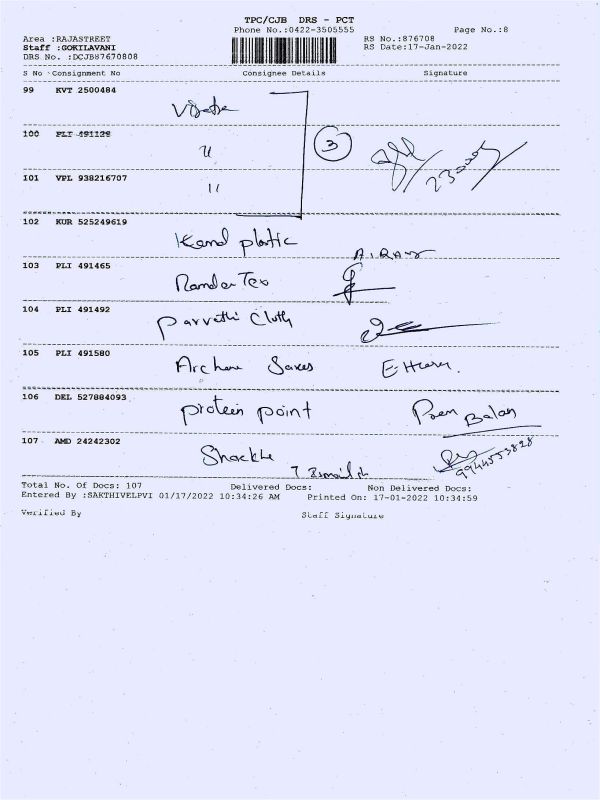 TPC/CJB DRS - PCT
Phone No.:0422-3505555 Page No.:8
Area :RAJASTREET RS No.:876708
Staff :GOKILAVANI RS Date:17-Jan-2022
DRS No. :DCJB87670808
S No Consignment No Consignee Details Signature
99 KVT 2500484
100 PLI 491129
3
101 VPL 938216707
102 KUR 525249619
Kamal plastic
103 PLI 491465
104 PLI 491492
Parvathi Cloth
105 PLI 491580
106 DEL 527884093
protein point
Balan
107 AMD 24242302
9944553828
Total No. Of Docs: 107 Delivered Docs: Non Delivered Docs:
Entered By :SAKTHIVELPVI 01/17/2022 10:34:26 AM Printed On: 17-01-2022 10:34:59
Verified By Staff Signature